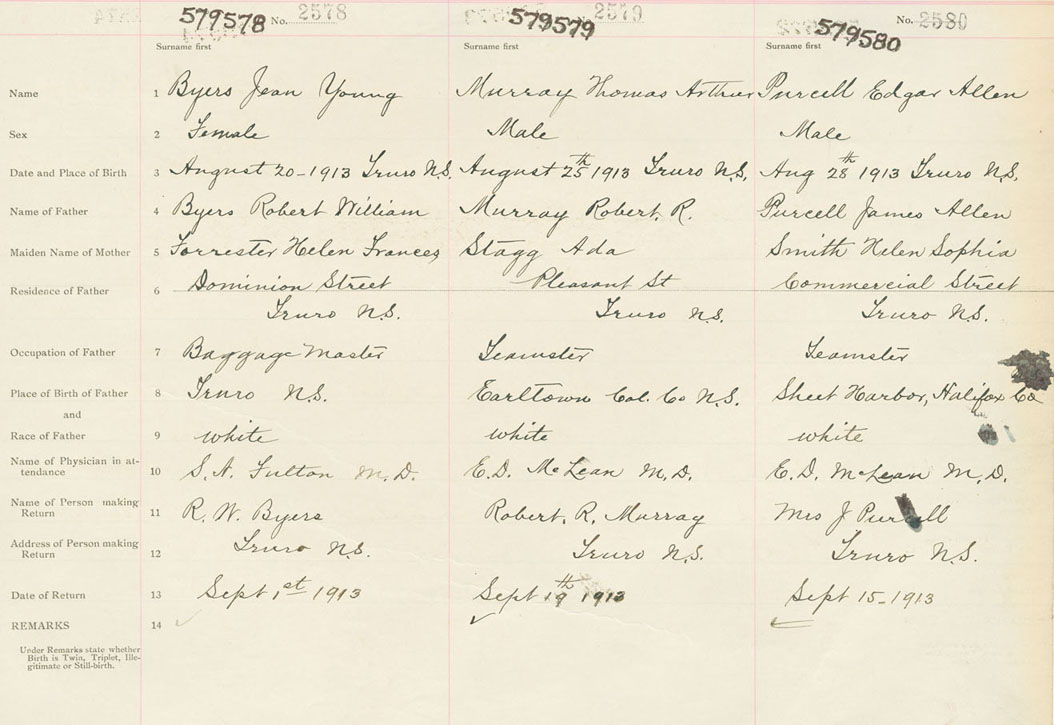 579578 No. 2578 579579 2579 579580 No. 2580
Surname first Surname first Surname first
Name 1 Byers Jean Young Murray Thomas Arthur Purcell Edgar Allen
Sex 2 Female Male Male
Date and Place of Birth 3 August 20-1913 Truro N.S. August 25th 1913 Truro N.S. Aug 28th 1913 Truro N.S.
Name of Father 4 Byers Robert William Murray Robert. R. Purcell James Allen
Maiden Name of Mother 5 Forrester Helen Frances Stagg Ada Smith Helen Sophia
Residence of Father 6 Dominion Street Pleasant St Commercial Street
Truro N.S. Truro N.S. Truro N.S.
Occupation of Father 7 Baggage Master Teamster Teamster
Place of Birth of Father 8 Truro N.S. Earltown Col. Co N.S. Sheet Harbor, Halifax Co
and
Race of Father 9 white white white
Name of Physician in at-
tendance 10 S. N. Fulton M.D. E.D. McLean M.D. E.D. McLean M.D.
Name of Person making
Return 11 R. W. Byers Robert. R. Murray Mrs J Purcell
Address of Person making
Return 12 Truro N.S. Truro N.S. Truro N.S.
Date of Return 13 Sept 1st 1913 Sept 19th 1913 Sept 15-1913
REMARKS 14
Under Remarks state whether
Birth is Twin, Triplet, Ille-
gitimate or Still-birth.